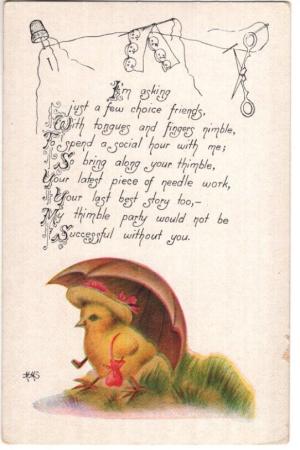 I'm asking
just a few choice friends,
With tongues and fingers nimble,
To spend a social hour with me;
So bring along your thimble,
Your latest piece of needle work,
Your last best story too,—
My thimble party would not be
Successful without you.
HMS